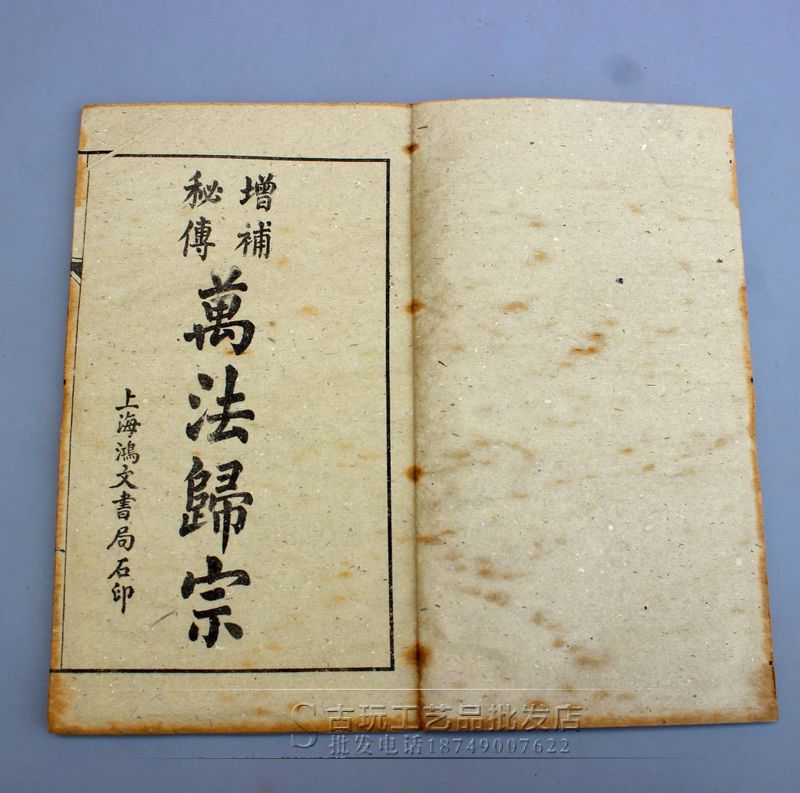 增補
秘傳
萬法歸宗
上海鴻文書局石印
古玩工艺品批发店
批发电话18749007622